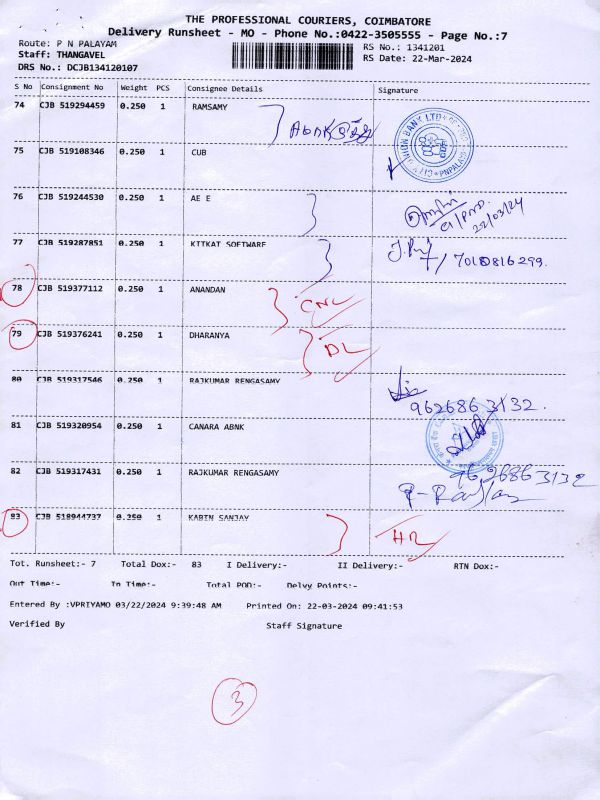 THE PROFESSIONAL COURIERS, COIMBATORE
Delivery Runsheet - MO - Phone No.:0422-3505555 - Page No.:7
Route: P N PALAYAM
RS No.: 1341201
Staff: THANGAVEL
RS Date: 22-Mar-2024
DRS No.: DCJB134120107
S No Consignment No Weight PCS Consignee Details Signature
74 CJB 519294459 0.250 1 RAMSAMY
75 CJB 519108346 0.250 1 CUB
76 CJB 519244530 0.250 1 AE E
22/03/24
77 CJB 519287851 0.250 1 KITKAT SOFTWARE
78 CJB 519377112 0.250 1 ANANDAN CNL
79 CJB 519376241 0.250 1 DHARANYA DL
80 CJB 519317546 0.250 1 RAJKUMAR RENGASAMY
9626863132.
81 CJB 519320954 0.250 1 CANARA ABNK
82 CJB 519317431 0.250 1 RAJKUMAR RENGASAMY
9626863132
83 CJB 518944737 0.250 1 KABIN SANJAY
Tot. Runsheet:- 7 Total Dox:- 83 I Delivery:- II Delivery:- RTN Dox:-
Out Time:- In Time:- Total POD:- Delvy Points:-
Entered By :VPRIYAMO 03/22/2024 9:39:48 AM Printed On: 22-03-2024 09:41:53
Verified By Staff Signature
3